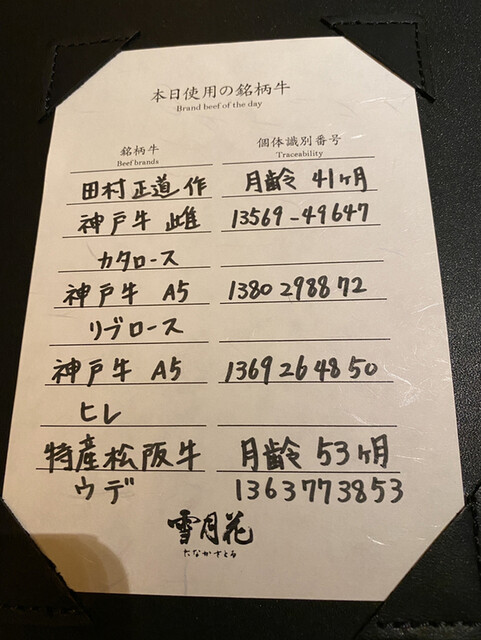 本日使用の銘柄牛
Brand beef of the day
銘柄牛 個体識別番号
Beef brands Traceability
田村正道作 月齢 41ヶ月
神戸牛 雌 13569-49647
カタロース
神戸牛 A5 1380298872
リブロース
神戸牛 A5 1369264850
ヒレ
特産松阪牛 月齢 53ヶ月
ウデ 1363773853
雪月花
たなかさとる